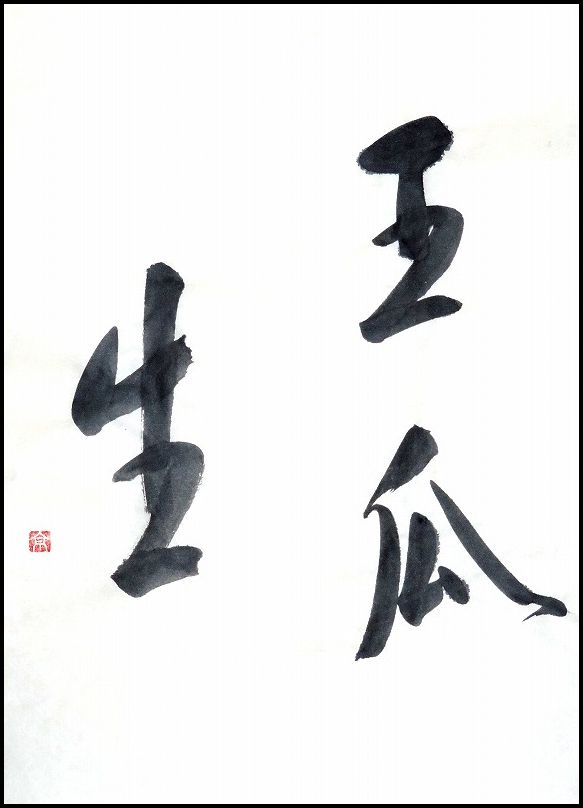 王瓜
生